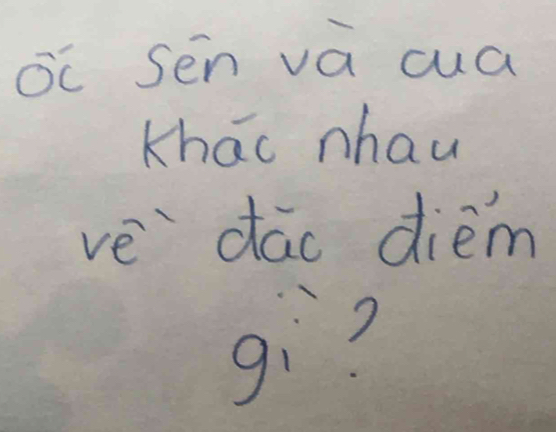 ốc sên và cua
khác nhau
về đặc điểm
gì?